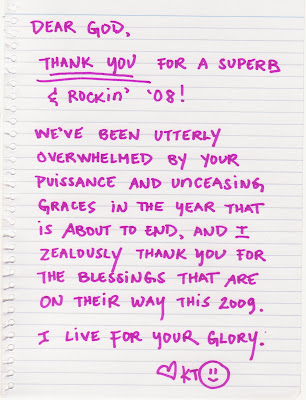 DEAR GOD,
THANK YOU FOR A SUPERB
& ROCKIN' '08!
WE'VE BEEN UTTERLY
OVERWHELMED BY YOUR
PUISSANCE AND UNCEASING
GRACES IN THE YEAR THAT
IS ABOUT TO END, AND I
ZEALOUSLY THANK YOU FOR
THE BLESSINGS THAT ARE
ON THEIR WAY THIS 2009.
I LIVE FOR YOUR GLORY.
♡KT☺